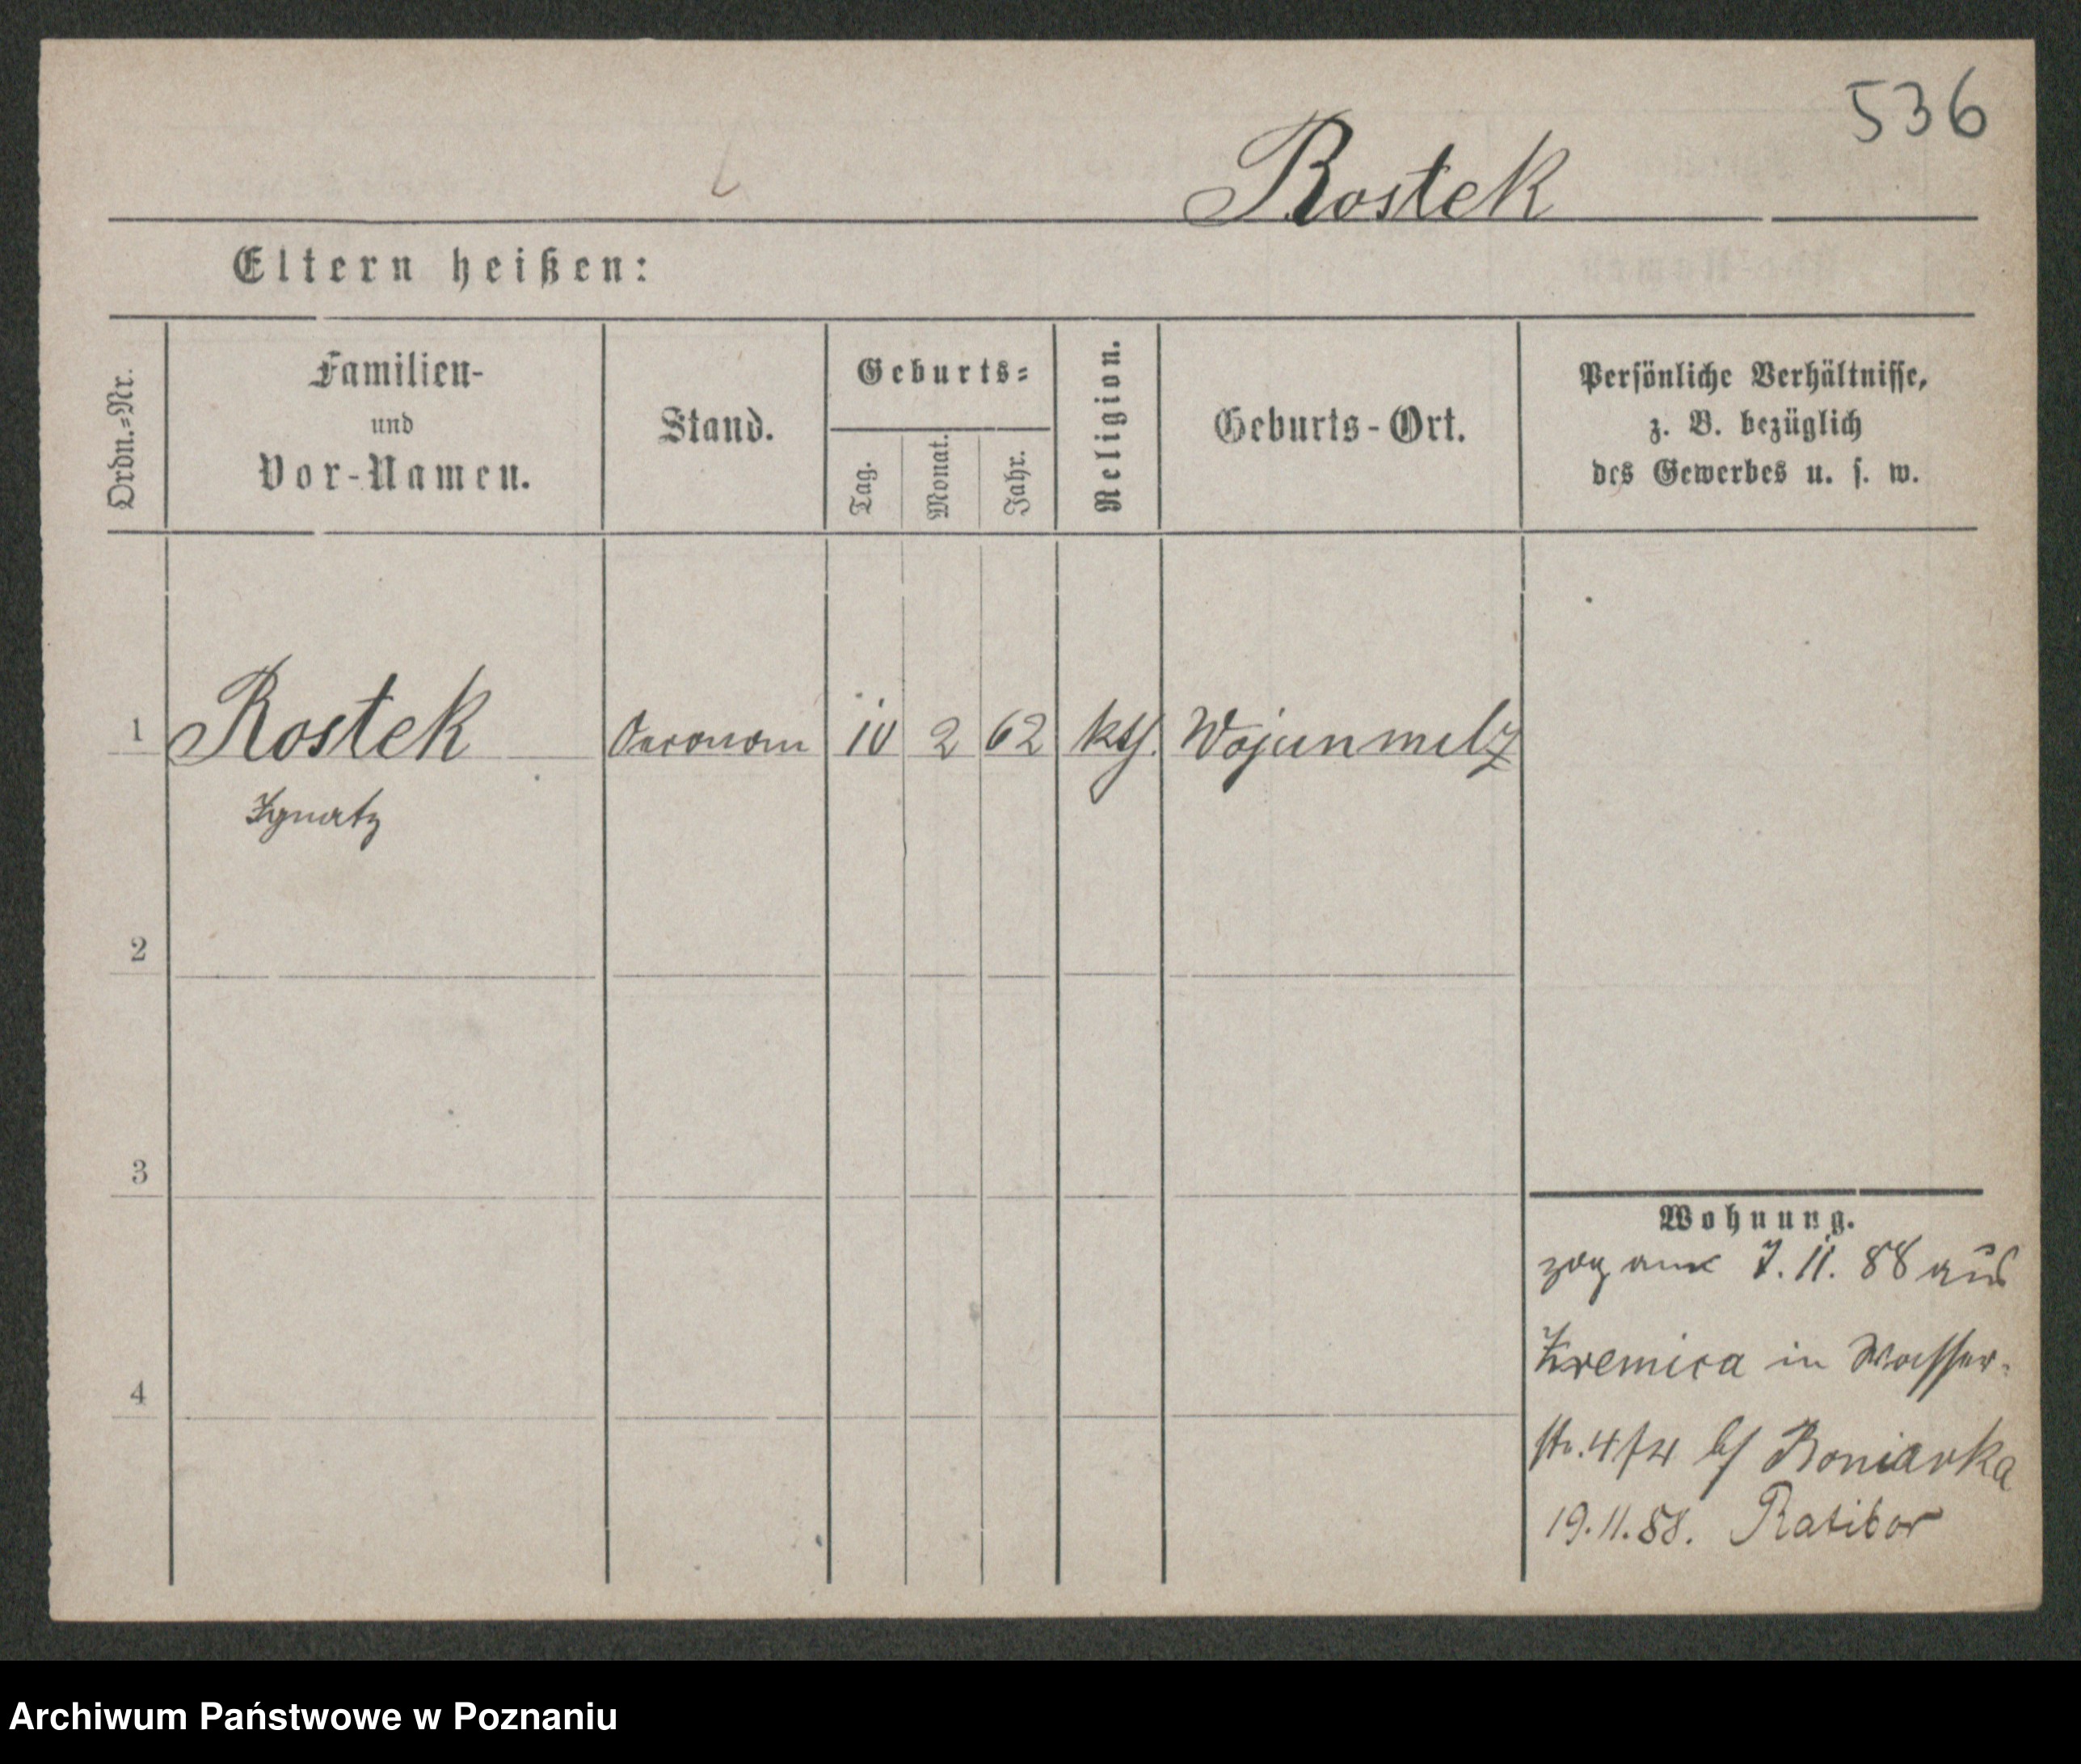 536
Rostek
Eltern heißen:
Ordn.=Nr.
Familien-
und
Vor-Namen.
Stand.
Geburts=
Tag.
Monat.
Jahr.
Religion.
Geburts-Ort.
Persönliche Verhältnisse,
z. B. bezüglich
des Gewerbes u. s. w.
1 Rostek Oeconom 10 2 62 kth.
Ignatz
2
3
4
Wohnung.
zog am 7. 11. 88 aus
in Wasser-
str. 4/4 bei Boniarka
19. 11. 88. Ratibor
Archiwum Państwowe w Poznaniu